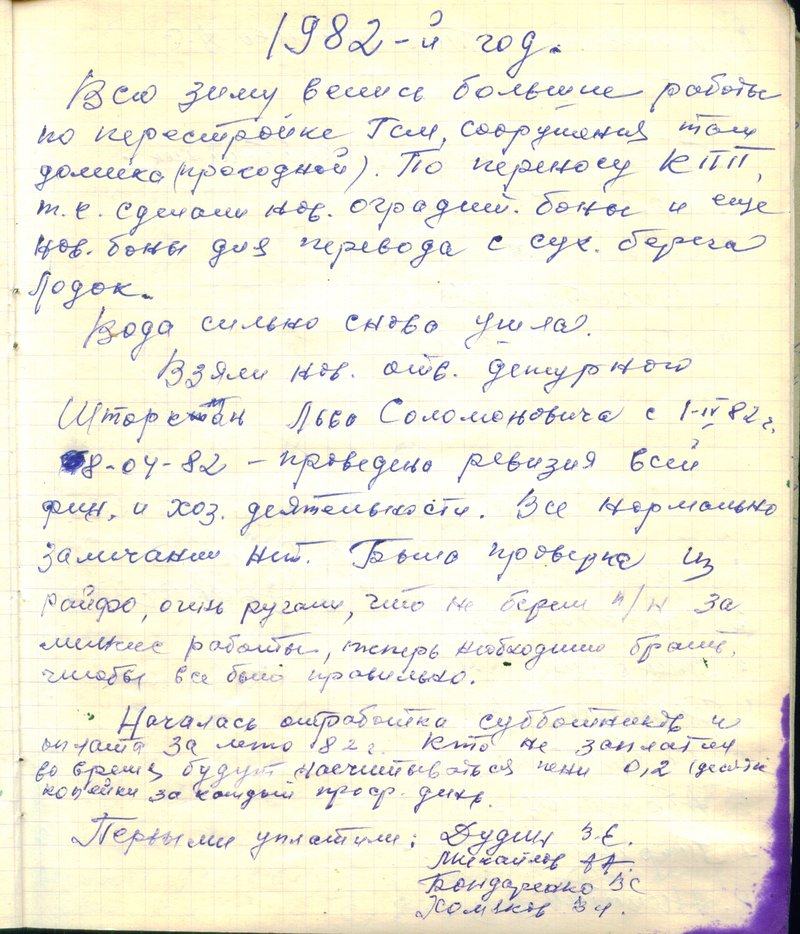 1982-й год.
Всю зиму велись большие работы
по перестройке Гсм, сооружения там
домика (проходной). По переносу КПП,
т.к. сделали нов. оградит. боны и еще
нов. боны для перевода с сух. берега
лодок.
Вода сильно снова ушла.
Взяли нов. отв. дежурного
Льва Соломоновича с 1-IV 82 г.
8-04-82 – проведена ревизия всей
фин. и хоз. деятельности. Все нормально
замечаний нет. Была проверка из
райфо, очень ругали, что не берем п/н за
мелкие работы, теперь необходимо брать,
чтобы все было правильно.
Началась отработка субботников и
оплата за лето 82 г. Кто не заплатил
во время будут насчитываться пени 0,2
копейки за каждый проср. день.
Первыми уплатили: Дудин З.Е.
Михайлов А.А.
Бондаренко ВС
Хомяков